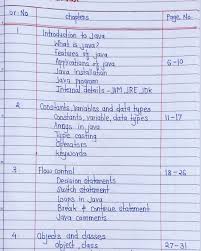 Sr. No chapters Page No.
1 Introduction to Java
What is java?
Features of java
Applications of java 6-10
Java Installation
Java program
Internal details - JVM, JRE, JDK
2 Constants, variables and data types
Constants, variable, data types 11-17
Arrays in java
Type casting
Operators
Keywords
3 Flow control 18-26
Decision statements
Switch statement
Loops in Java
Break & continue statement
Java comments
4 Objects and classes
Object, class 27-31